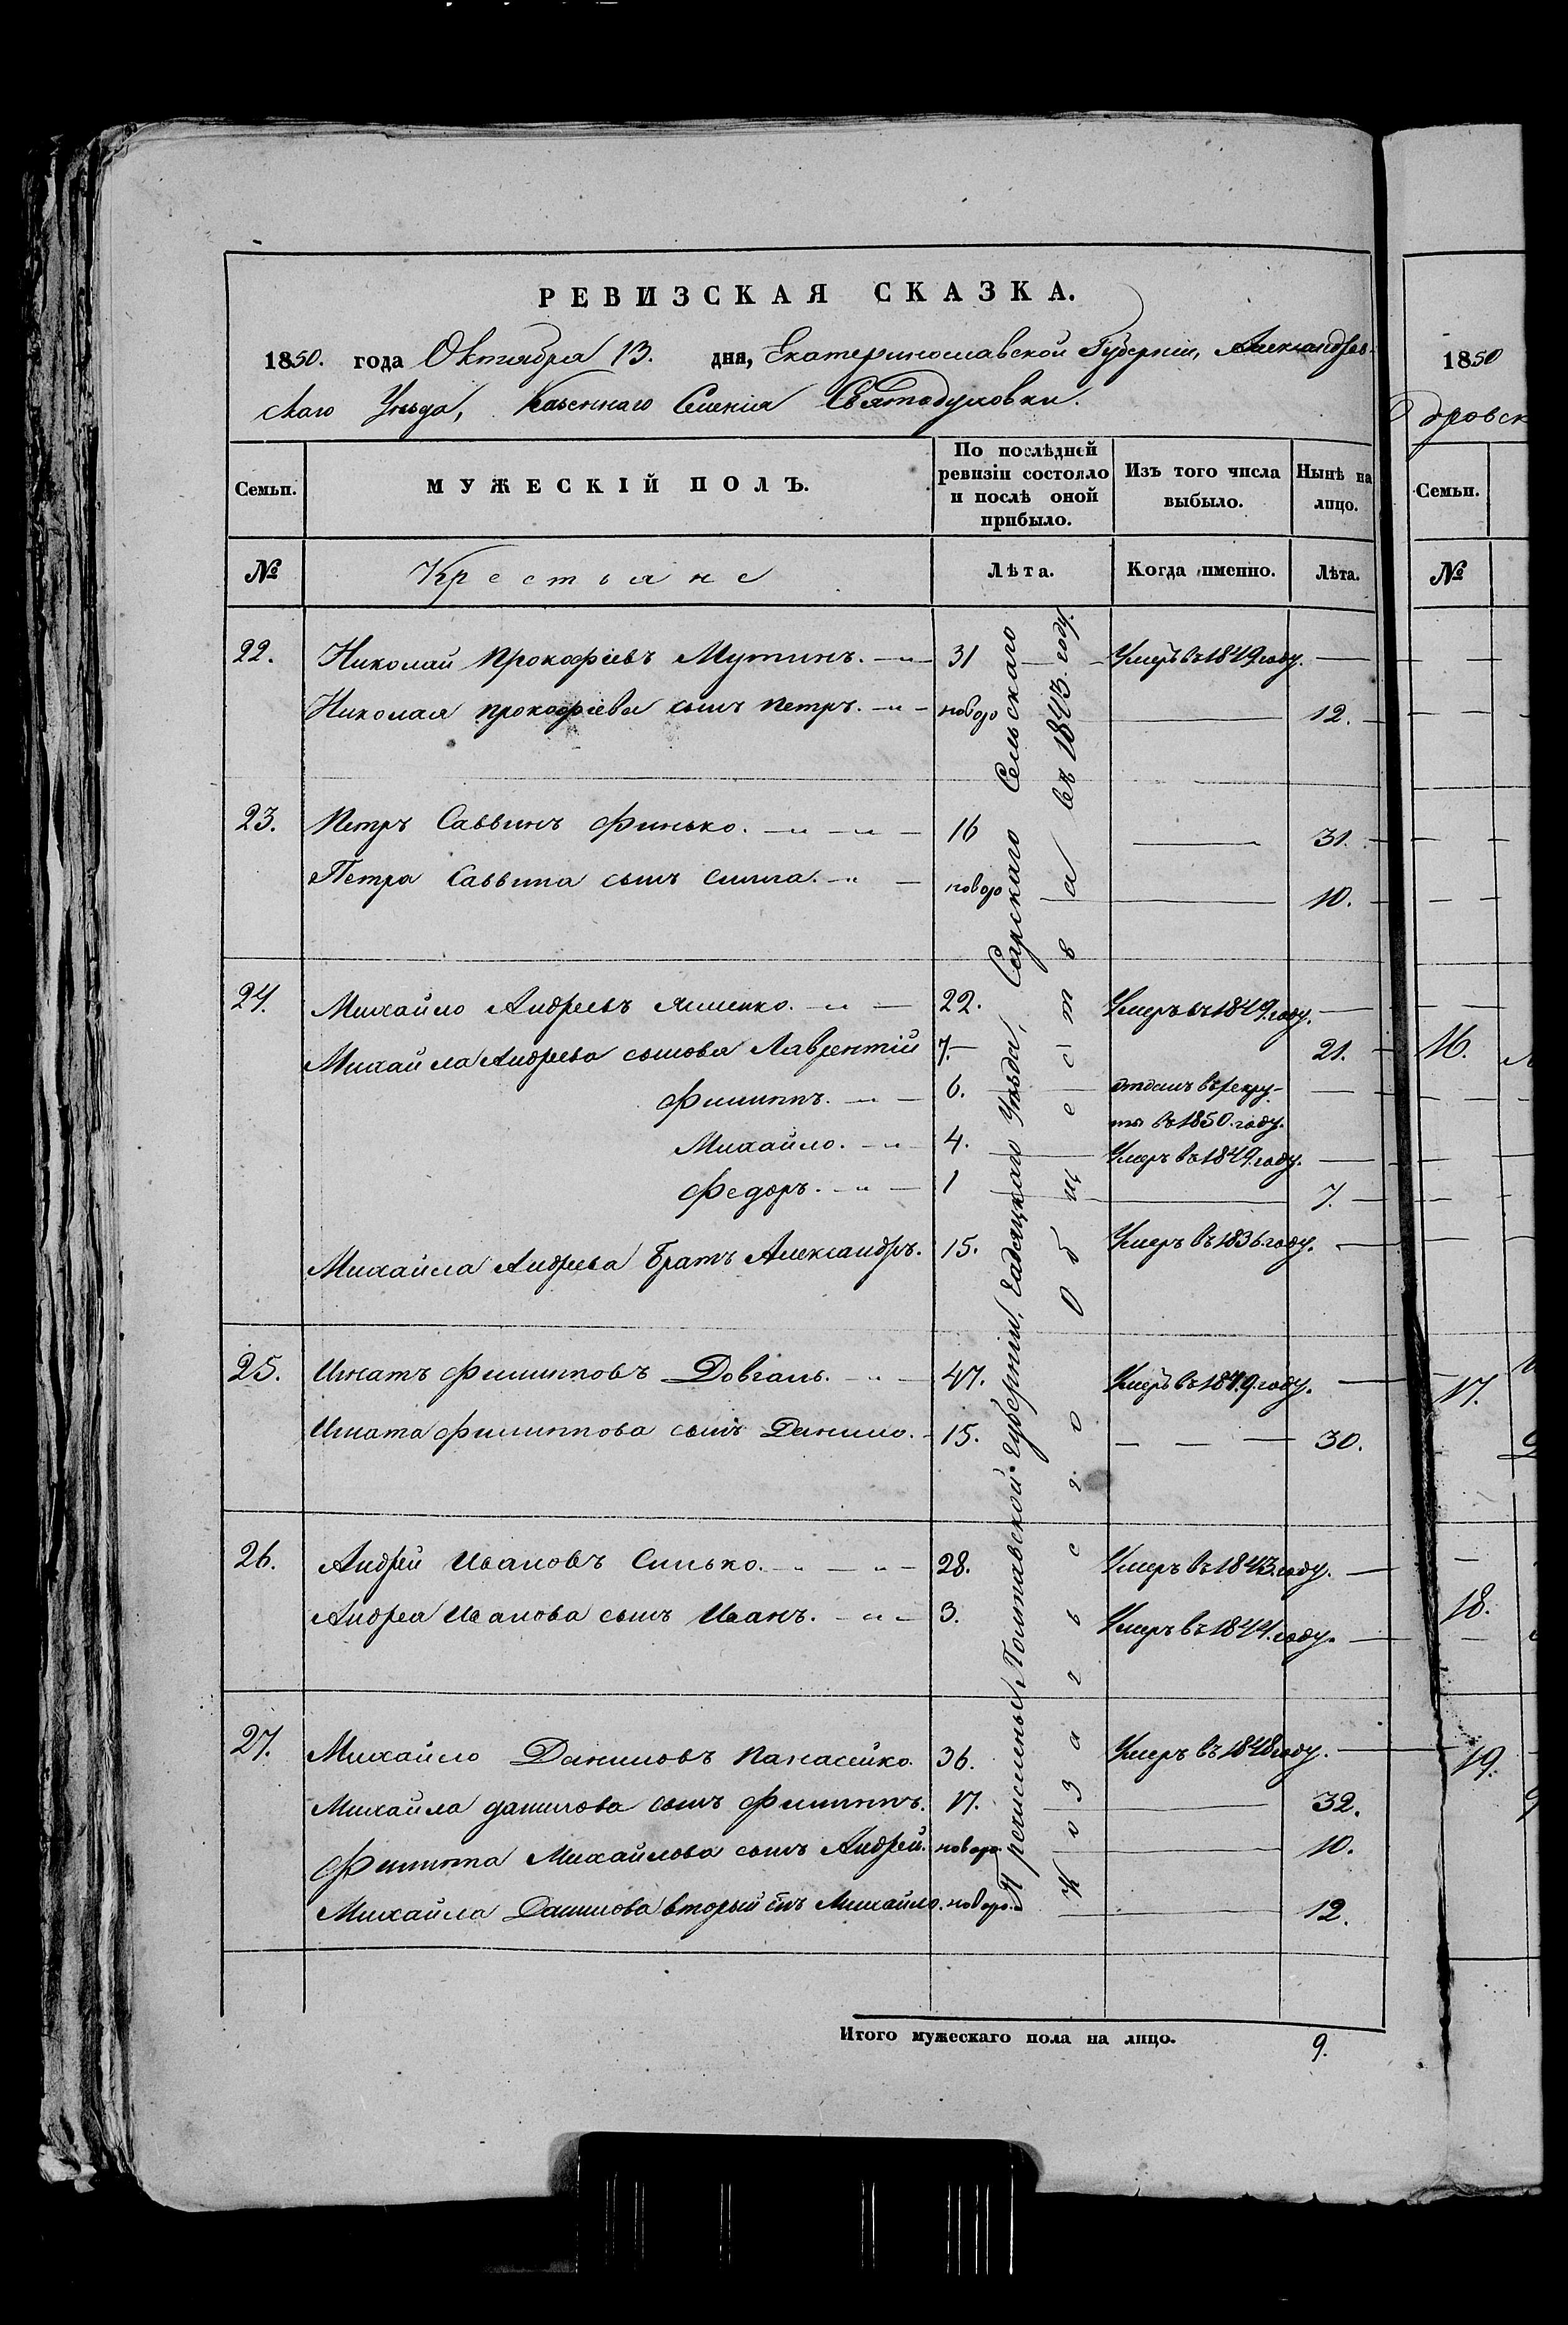 РЕВИЗСКАЯ СКАЗКА.
1850. года Октября 13. дня, Екатеринославской Губерніи, Александров-
скаго Уезда, Казеннаго Селенія Святодуховки.
Семьи.
МУЖЕСКІЙ ПОЛЪ.
По послѣдней ревизіи состояло и послѣ оной прибыло.
Изъ того числа выбыло.
Нынѣ на лицо.
№ Крестьяне Лѣта. Когда именно. Лѣта.
22. Николай Прокофіевъ Мутинъ. 31 Умеръ въ 1849 году.
Николая Прокофіева сынъ Петръ. новоро 12.
23. Петръ Саввинъ Финько. 16 31.
Петра Саввина сынъ Симма. новоро 10.
24. Михайло Андреевъ Ященко. 22. Умеръ въ 1849 году.
Михайла Андреева сыновья Лаврентій 7. 21.
Филиппъ. 6. отданъ въ рекру-
ты въ 1850. году.
Михайло. 4. Умеръ въ 1849. году.
Федоръ. 1 7.
Михайла Андреева братъ Александръ. 15. Умеръ въ 1836 году.
25. Игнатъ Филипповъ Довгаль. 47. Умеръ въ 1849. году.
Игната Филиппова сынъ Данило. 15. 30.
26. Андрей Ивановъ Синько. 28. Умеръ въ 1843. году.
Андрея Иванова сынъ Иванъ. 3. Умеръ въ 1844. году.
27. Михайло Даниловъ Панасейко. 36. Умеръ въ 1848 году.
Михайла Данилова сынъ Филиппъ. 17. 32.
Филиппа Михайлова сынъ Андрей. новоро. 10.
Михайла Данилова вторый снъ Михайло. новоро. 12.
Причислены Полтавской губерніи, Гадяцкаго Уѣзда, Сарскаго Сельскаго
Козачьяго Общества въ 1843. году.
Итого мужескаго пола на лицо. 9.
1850
Семьи.
№
16.
17.
18.
19.